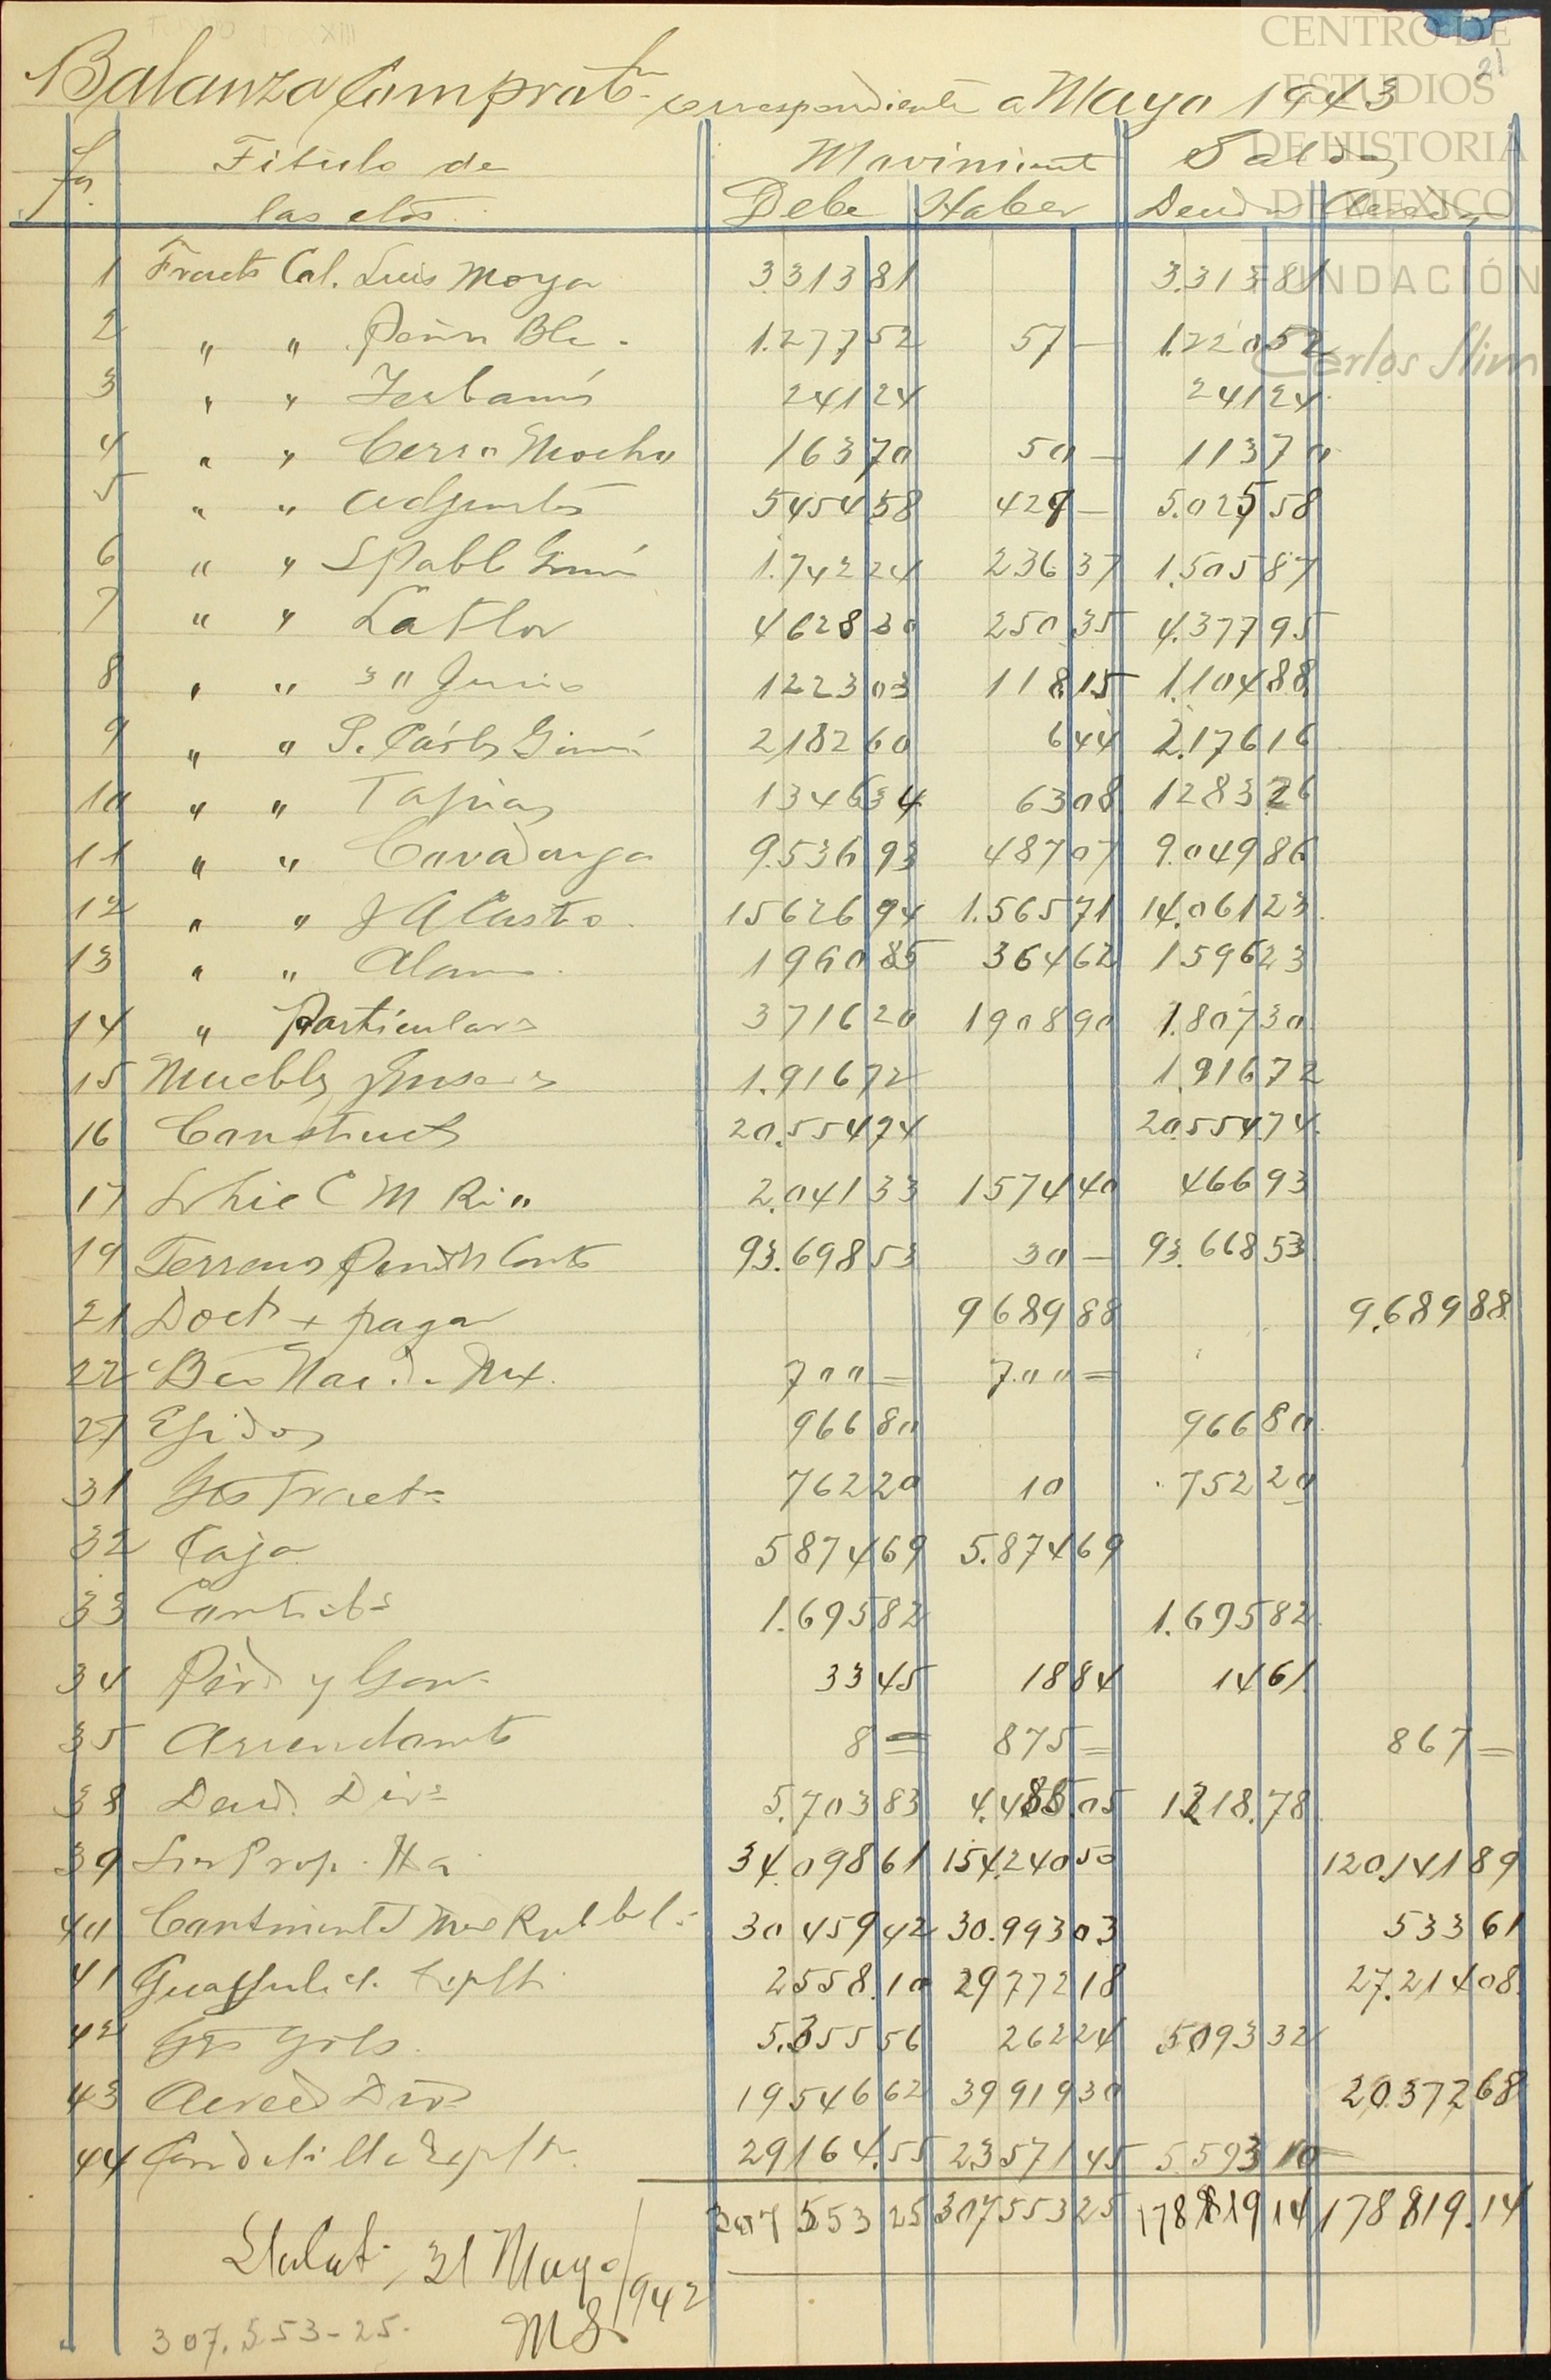 CENTRO DE
ESTUDIOS
DE HISTORIA
DE MEXICO
FUNDACIÓN
Carlos Slim
21
Balanza Comprobn correspondiente a Mayo 1943
Fo. Titulo de Movimient Saldos
las ctas. Debe Haber Deudor Acreedor
1 Fracts Col. Luis Moya 3.313 81 3.313 81
2 " " Peña Bla. 1.277 52 57 — 1.220 52
3 " " 241 24 241 24
4 " " Cerro Mocho 163 70 50 — 113 70
5 " " Adjuntas 5454 58 429 — 5.025 58
6 " " S Pabl 1.742 24 236 37 1.505 87
7 " " La Flor 4628 30 250 35 4.377 95
8 " " 1223 03 118 15 1.104 88
9 " " S. Carls 2182 60 6 44 2.176 16
10 " " Tapias 1346 34 63 08 1283 26
11 " " Covadonga 9.536 93 487 07 9.049 86
12 " " J A Castro 15626 94 1.565 71 14.061 23
13 " " Alam 1960 85 364 62 1596 23
14 " Particulars 3716 20 1908 90 1.807 30
15 Muebls y Enseres 1.916 72 1.916 72
16 Construcs 20.554 74 20554 74
17 C M Rio 2.041 33 1574 40 466 93
19 Terrenos 93.698 53 30 — 93.668 53
21 Docts x pagar 9689 88 9.689 88
22 Bco Nac. de Mx. 700 — 700 =
27 Ejidos 966 80 966 80
31 Gts Tract 762 20 10 752 20
32 Caja 5874 69 5.874 69
33 1.695 82 1.695 82
34 Perd y Gan 33 45 18 84 14 61
35 Arrendamts 8 = 875 = 867 =
38 Deud. Divs 5.703 83 4.485.05 1218.78
39 Prop. Ha 34.098 61 154.240 50 120.141 89
40 30459 42 30.993 03 533 61
41 2558.10 29772 18 27.214 08
42 Gts Grls. 5.355 56 262 24 5093 32
43 Acreed Divs 19546 62 39919 30 20.372 68
44 29164.55 23571 45 5.593 10
307 553 25 307553 25 178 819 14 178 819.14
31 Mayo/942
307.553-25. MS.